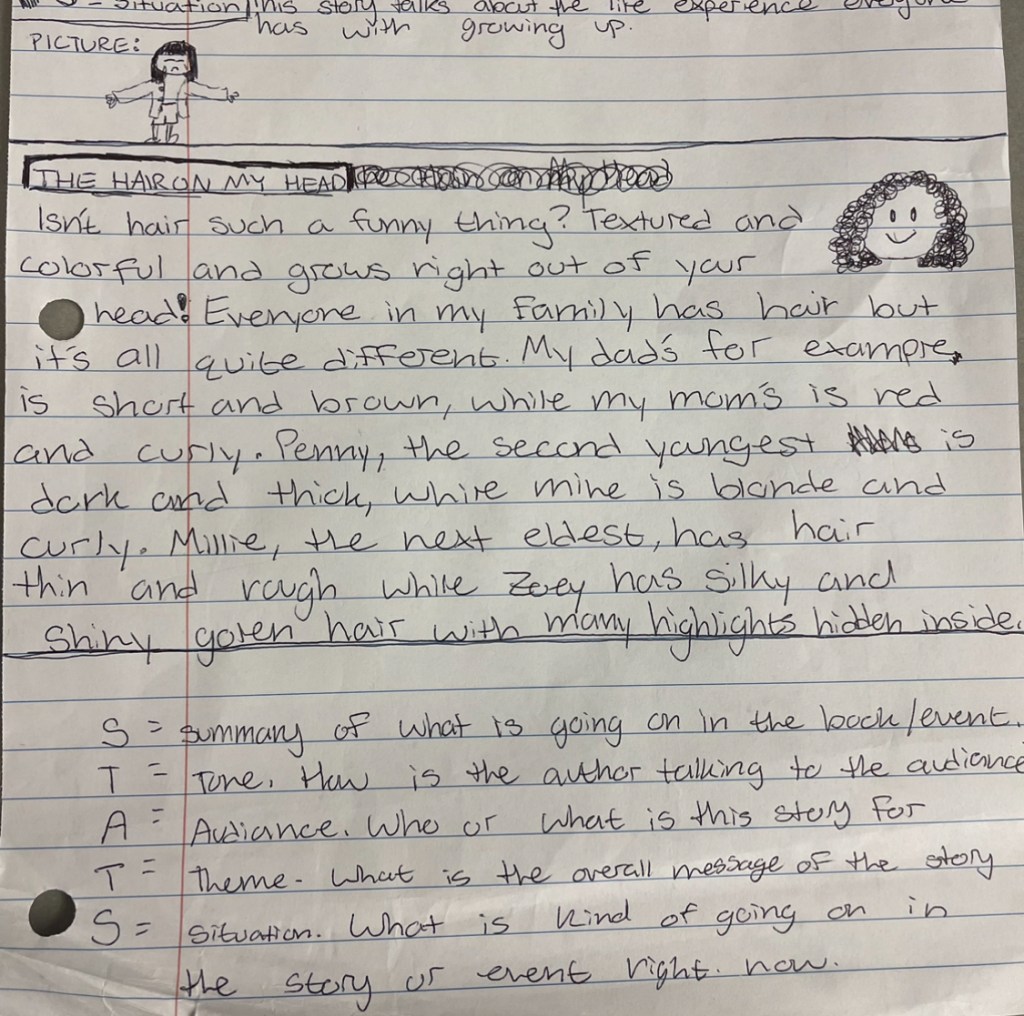 S = Situation This story talks about the life experience everyone
has with growing up.
PICTURE:
THE HAIR ON MY HEAD The Hair on My Head
Isn't hair such a funny thing? Textured and
colorful and grows right out of your
head! Everyone in my family has hair but
it's all quite different. My dad's for example,
is short and brown, while my mom's is red
and curly. Penny, the second youngest is
dark and thick, while mine is blonde and
curly. Millie, the next eldest, has hair
thin and rough while Zoey has silky and
shiny golen hair with many highlights hidden inside.
S = summary of what is going on in the book/event.
T = Tone. How is the author talking to the audiance
A = Audiance. Who or what is this story for
T = Theme - What is the overall message of the story
S = situation. What is kind of going on in
the story or event right. now.